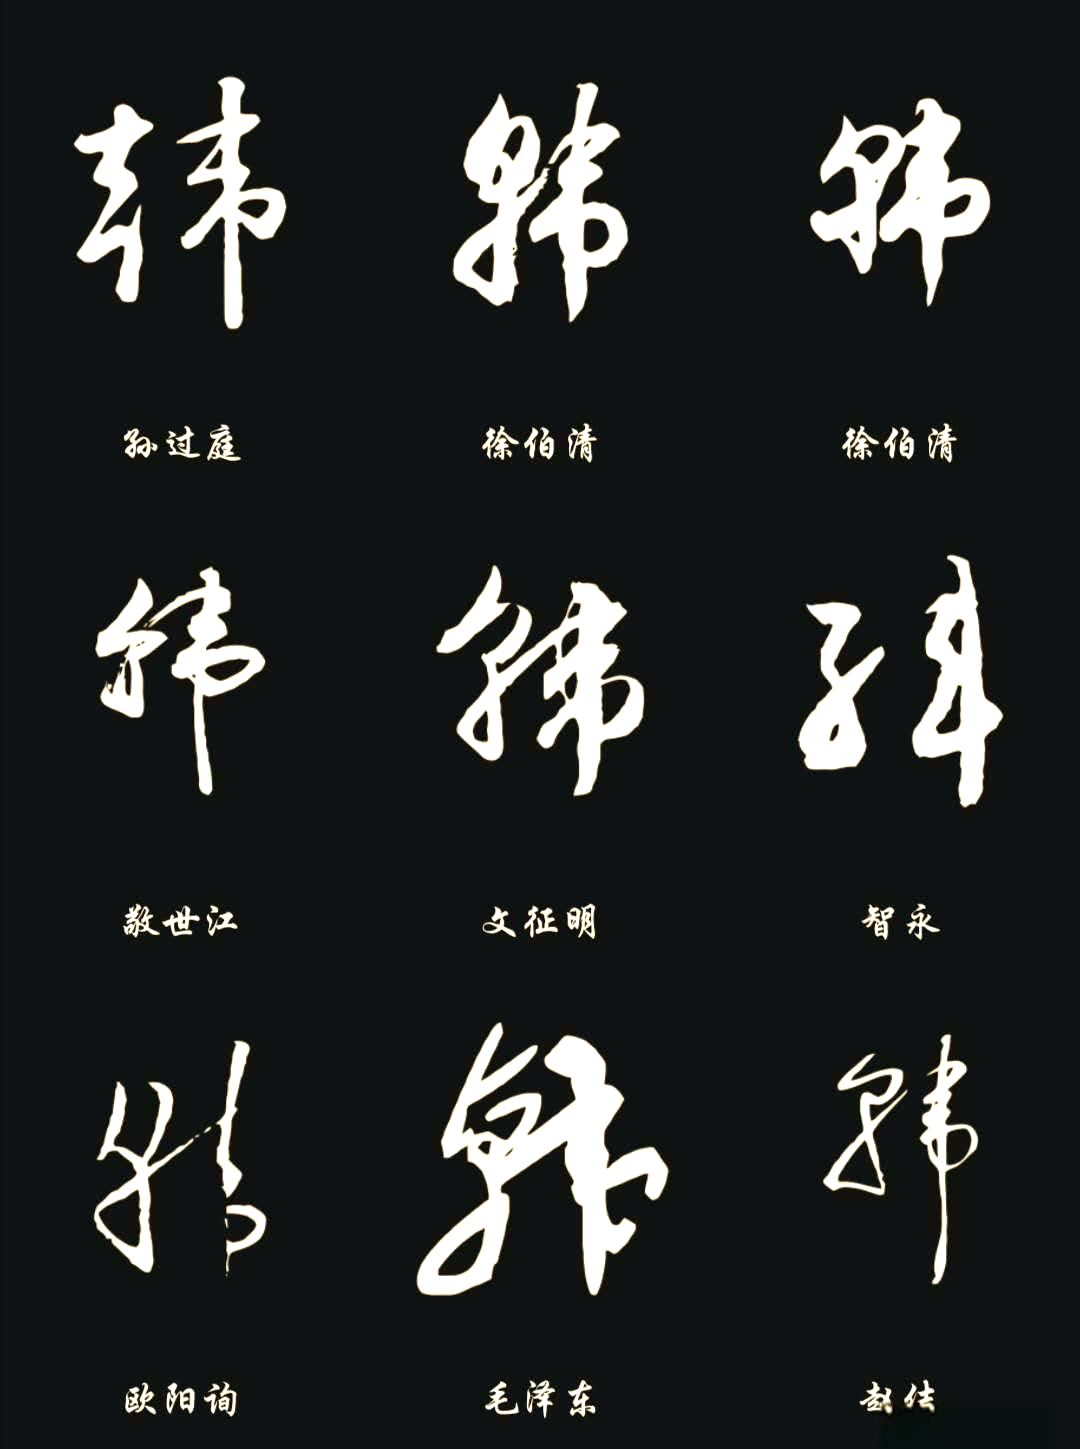 韩 韩 韩
孙过庭 徐伯清 徐伯清
韩 韩 韩
敬世江 文征明 智永
韩 韩 韩
欧阳询 毛泽东 赵佶